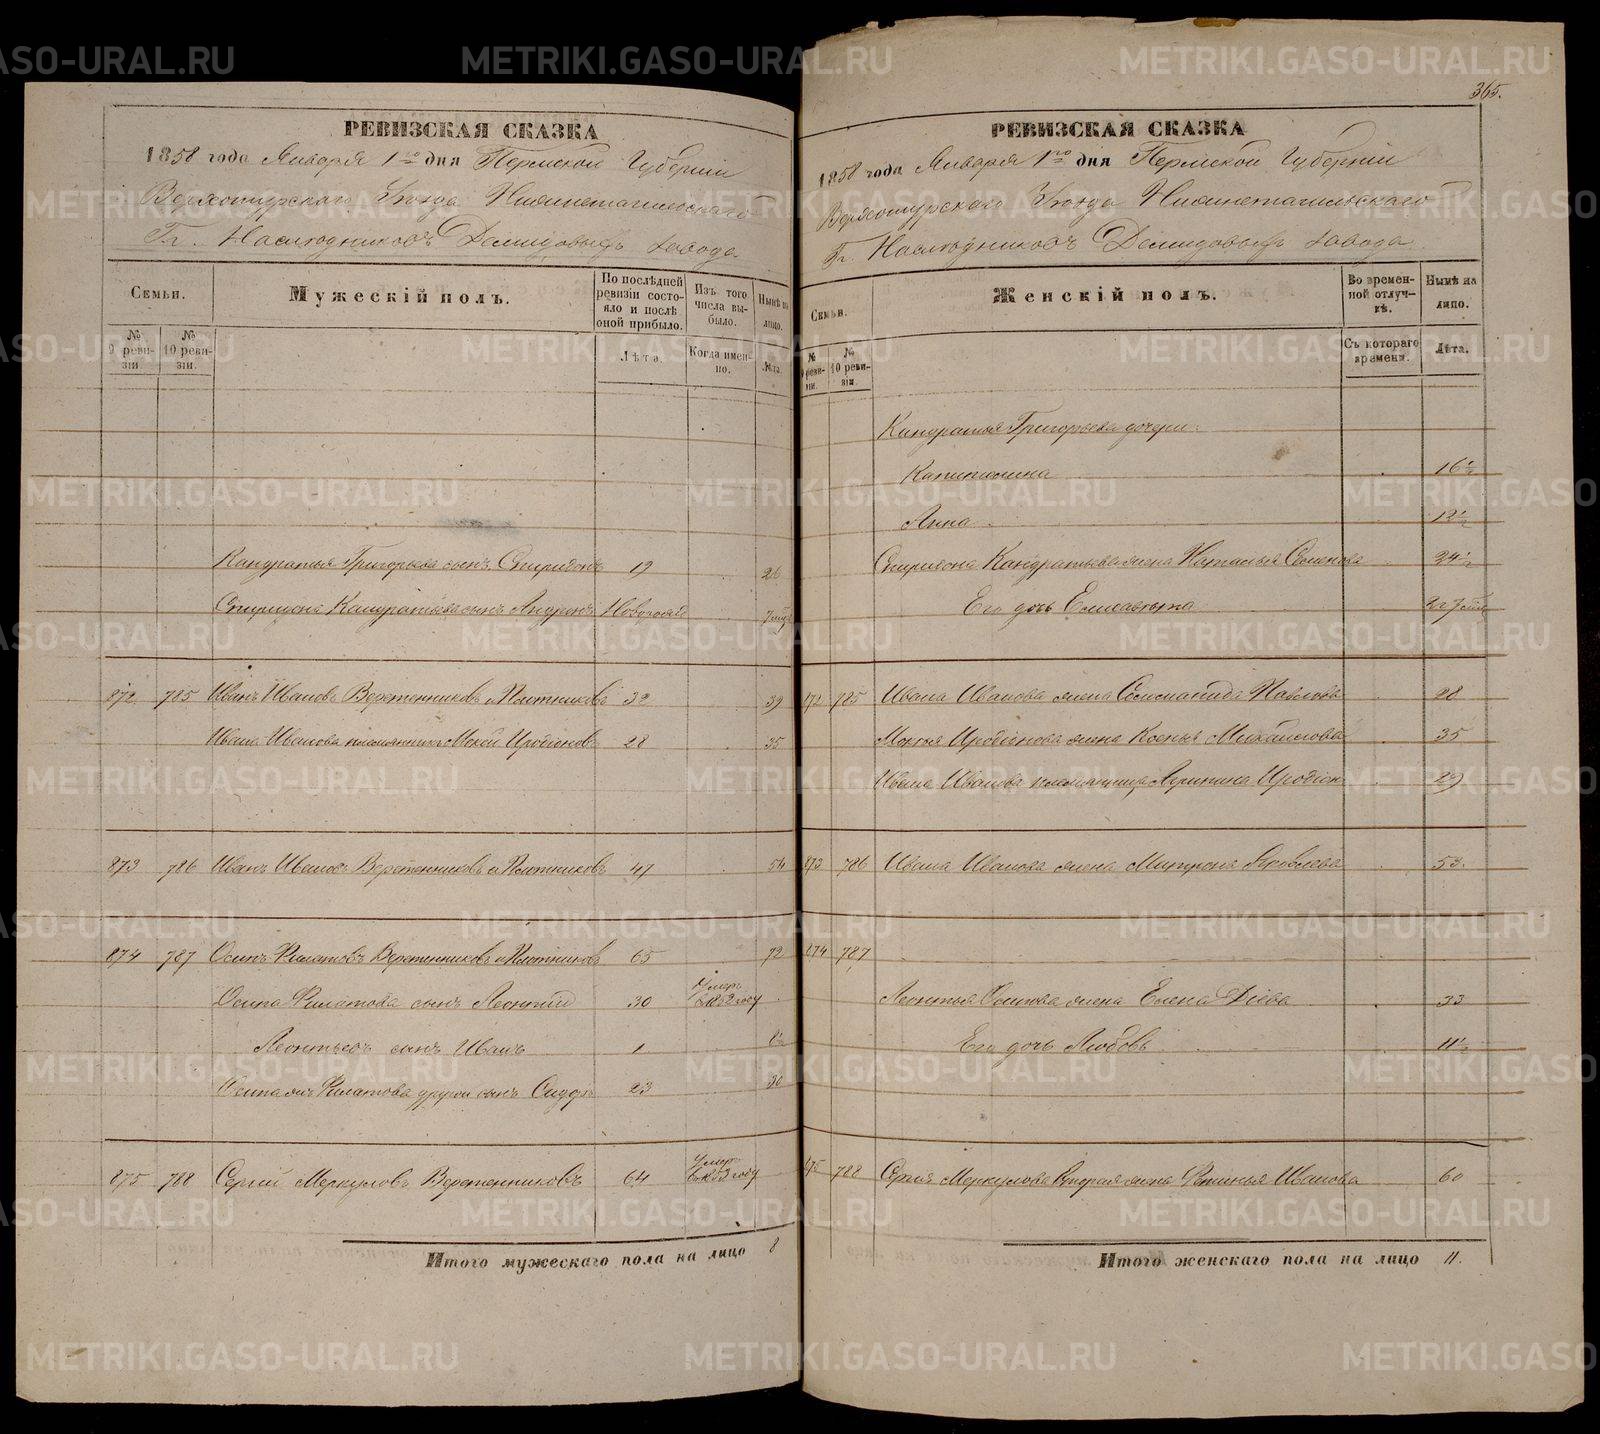 РЕВИЗСКАЯ СКАЗКА
1858 года Января 1го дня Пермской Губернiи
Верхотурскаго Уѣзда Нижнетагильскаго
Гг. Наслѣдниковъ Демидовыхъ завода
Семьи.
Мужескiй полъ.
По послѣдней ревизiи состояло и послѣ оной прибыло.
Изъ того числа выбыло.
Нынѣ на лицо.
№ 9 ревизiи
№ 10 ревизiи.
Лѣта.
Когда именно.
Лѣта.
Кандратья Григорьева сынъ Спиридонъ 19 26
Спиридона Кандратьева сынъ Андронъ 7
872 785 Иванъ Ивановъ Веретенниковъ и Плотниковъ 32 39
Ивана Иванова племянникъ Мокей Иродiоновъ 28 35
873 786 Иванъ Ивановъ Веретенниковъ и Плотниковъ 47 54
874 787 Осипъ Филатовъ Веретенниковъ и Плотниковъ 65 72
Осипа Филатова сынъ Леонтiй 30 Умеръ году
Леонтьевъ сынъ Иванъ 1 8½
Осипа Филатова другой сынъ 23 30
875 788 Сергiй Меркуловъ Веретенниковъ 64 Умеръ году
Итого мужескаго пола на лицо 8
365.
РЕВИЗСКАЯ СКАЗКА
1858 года Января 1го дня Пермской Губернiи
Верхотурскаго Уѣзда Нижнетагильскаго
Гг. Наслѣдниковъ Демидовыхъ завода
Семьи.
Женскiй полъ.
Во временной отлучкѣ.
Нынѣ на лицо.
№ 9 ревизiи.
№ 10 ревизiи
Съ котораго времени.
Лѣта.
Кандратья Григорьева дочери:
Капитолина 16½
Анна 12½
Спиридона Кандратьева жена Наталья Семенова 24½
Его дочь Елисавета
872 785 Ивана Иванова жена Соломанида Павлова 28
Иродiонова жена Ксенья Михайлова 35
Ивана Иванова племянница Агрипина 29
873 786 Ивана Иванова жена Митрона Яковлева 53.
874 787
Леонтья Осипова жена Елена Дiева 33
Его дочь Любовь 11½
875 788 Сергiя Меркулова Вторая жена Фетинья Иванова 60
Итого женскаго пола на лицо 11.
METRIKI.GASO-URAL.RU